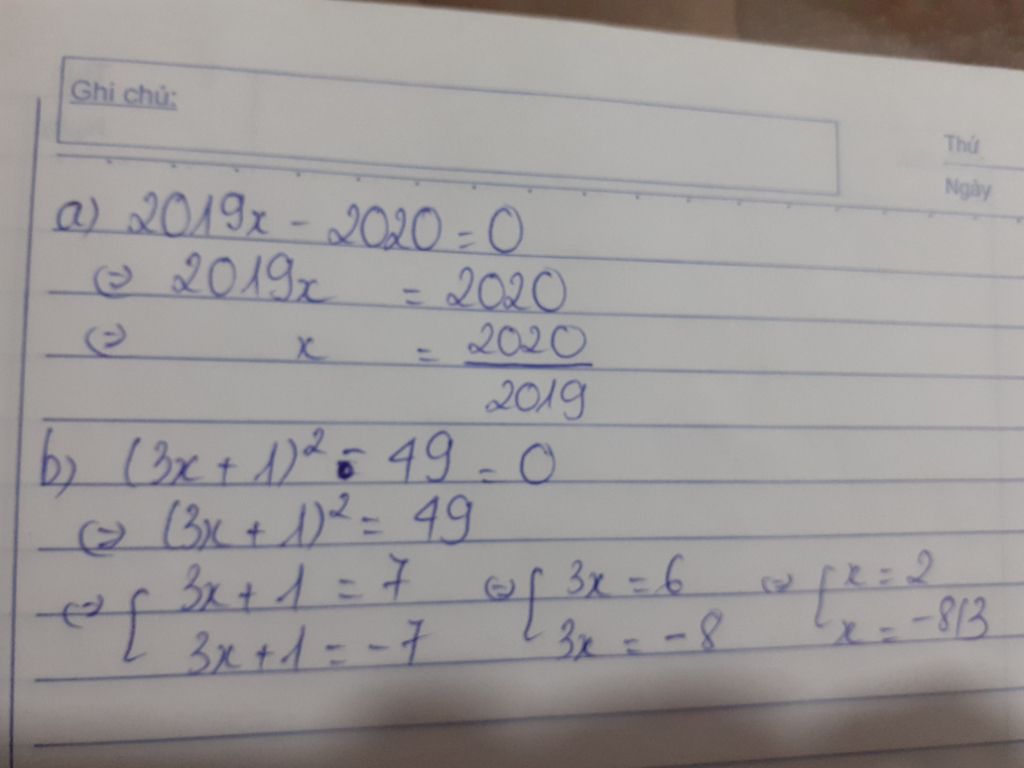 Ghi chú:
Thứ
Ngày
a) 2019x - 2020 = 0
⇔ 2019x = 2020
⇔ x = 2020/2019
b) (3x + 1)² - 49 = 0
⇔ (3x + 1)² = 49
⇔ [ 3x + 1 = 7 ⇔ [ 3x = 6 ⇔ [ x = 2
3x + 1 = -7 3x = -8 x = -8/3